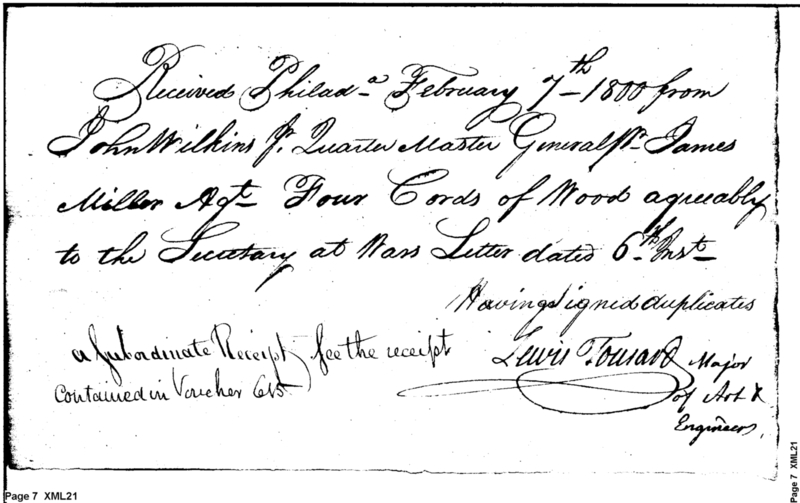 Received Philada. February 7th 1800 from
John Wilkins Jr. Quarter Master General pr. James
Miller Agt. Four Cords of Wood agreeably
to the Secretary at Wars Letter dated 6th Inst.
Having Signed duplicates
Lewis Tousard Major
of Art &
Engineers.
a Subordinate Receipt see the receipt
Contained in Voucher
Page 7 XML21
Page 7 XML21